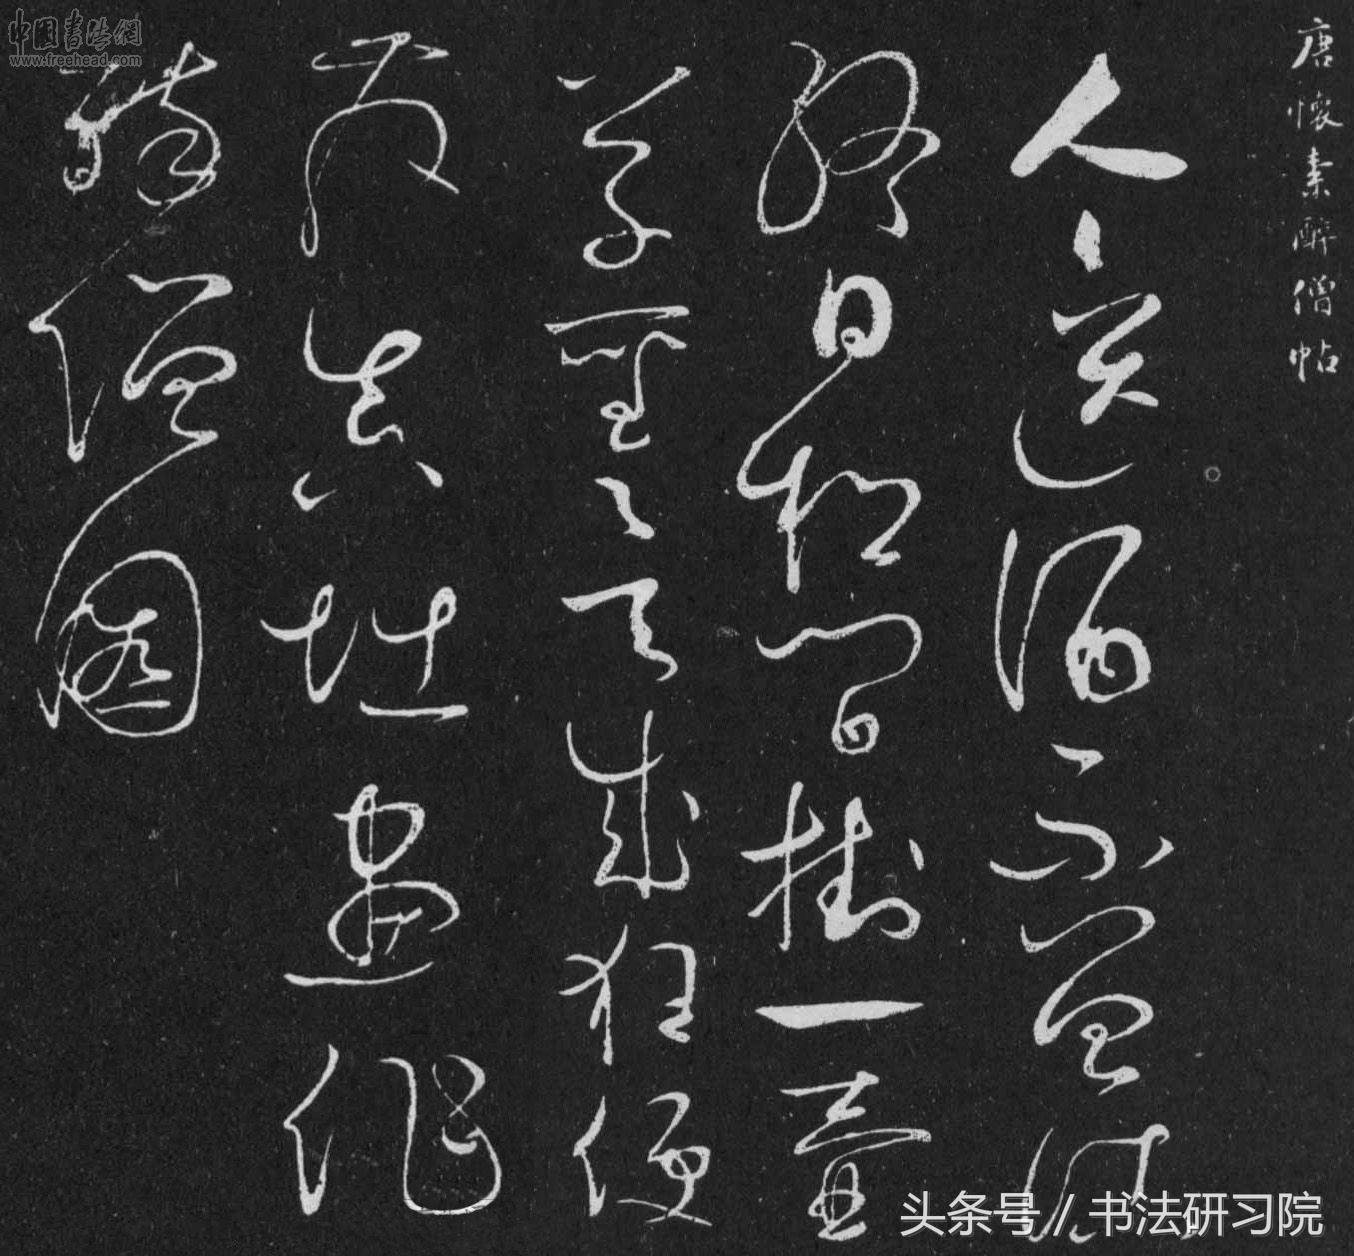 唐懷素醉僧帖
人人送酒不曾沽
終日松間掛一壺
草聖欲成狂便
發真堪畫作
醉僧圖
中国书法網
www.freehead.com
头条号 / 书法研习院